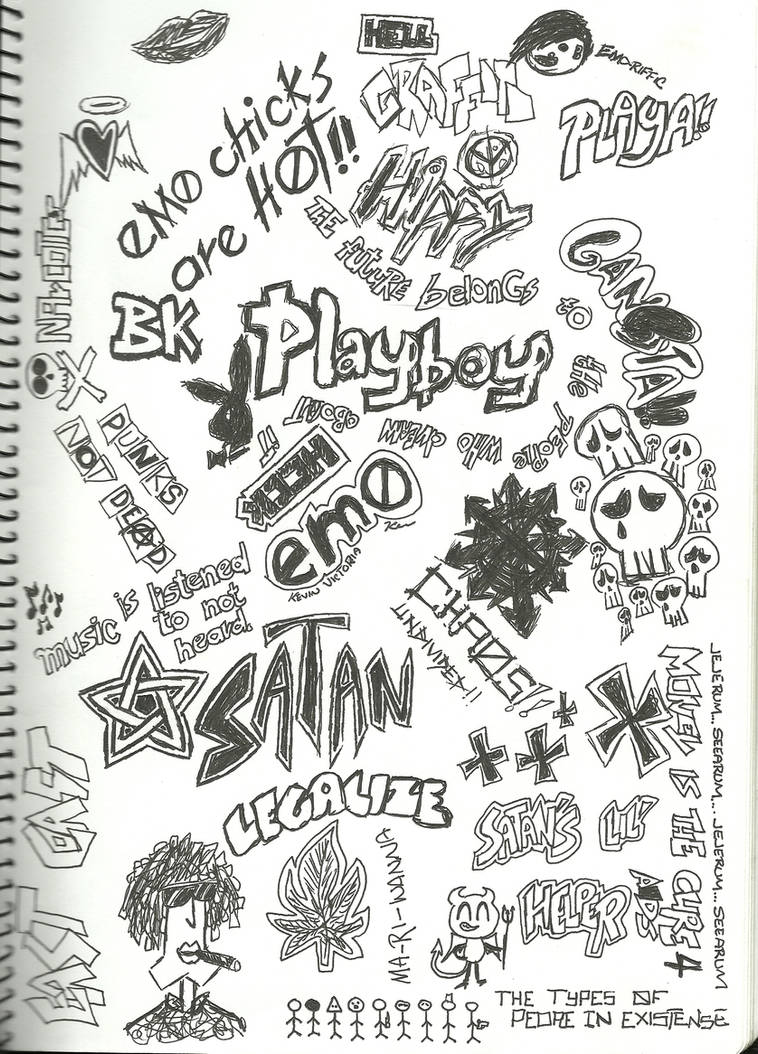 HELL
EMO-RIFFC
GRAFFITI
PLAYA!!
emo chicks
are HOT!!
HiPPY
NARCOTIC
THE future belongs to the people who dream about it
GANGSTA!!
BK
Playboy
PUNKS
NOT
DEAD
HECK
emo
KEVIN VICTORIA
Kev
music is listened
to not
heard.
CHAOS!!
UNDIVIDED!!
SATAN
JEJERUM... SEEARUM... JEJERUM... SEEARUM
MONEY IS THE CURE 4
AIDS
EAST EAST
LEGALIZE
MA-RI-WANNA
SATAN'S LIL'
HELPER
THE TYPES OF
PEOPLE IN EXISTENSE